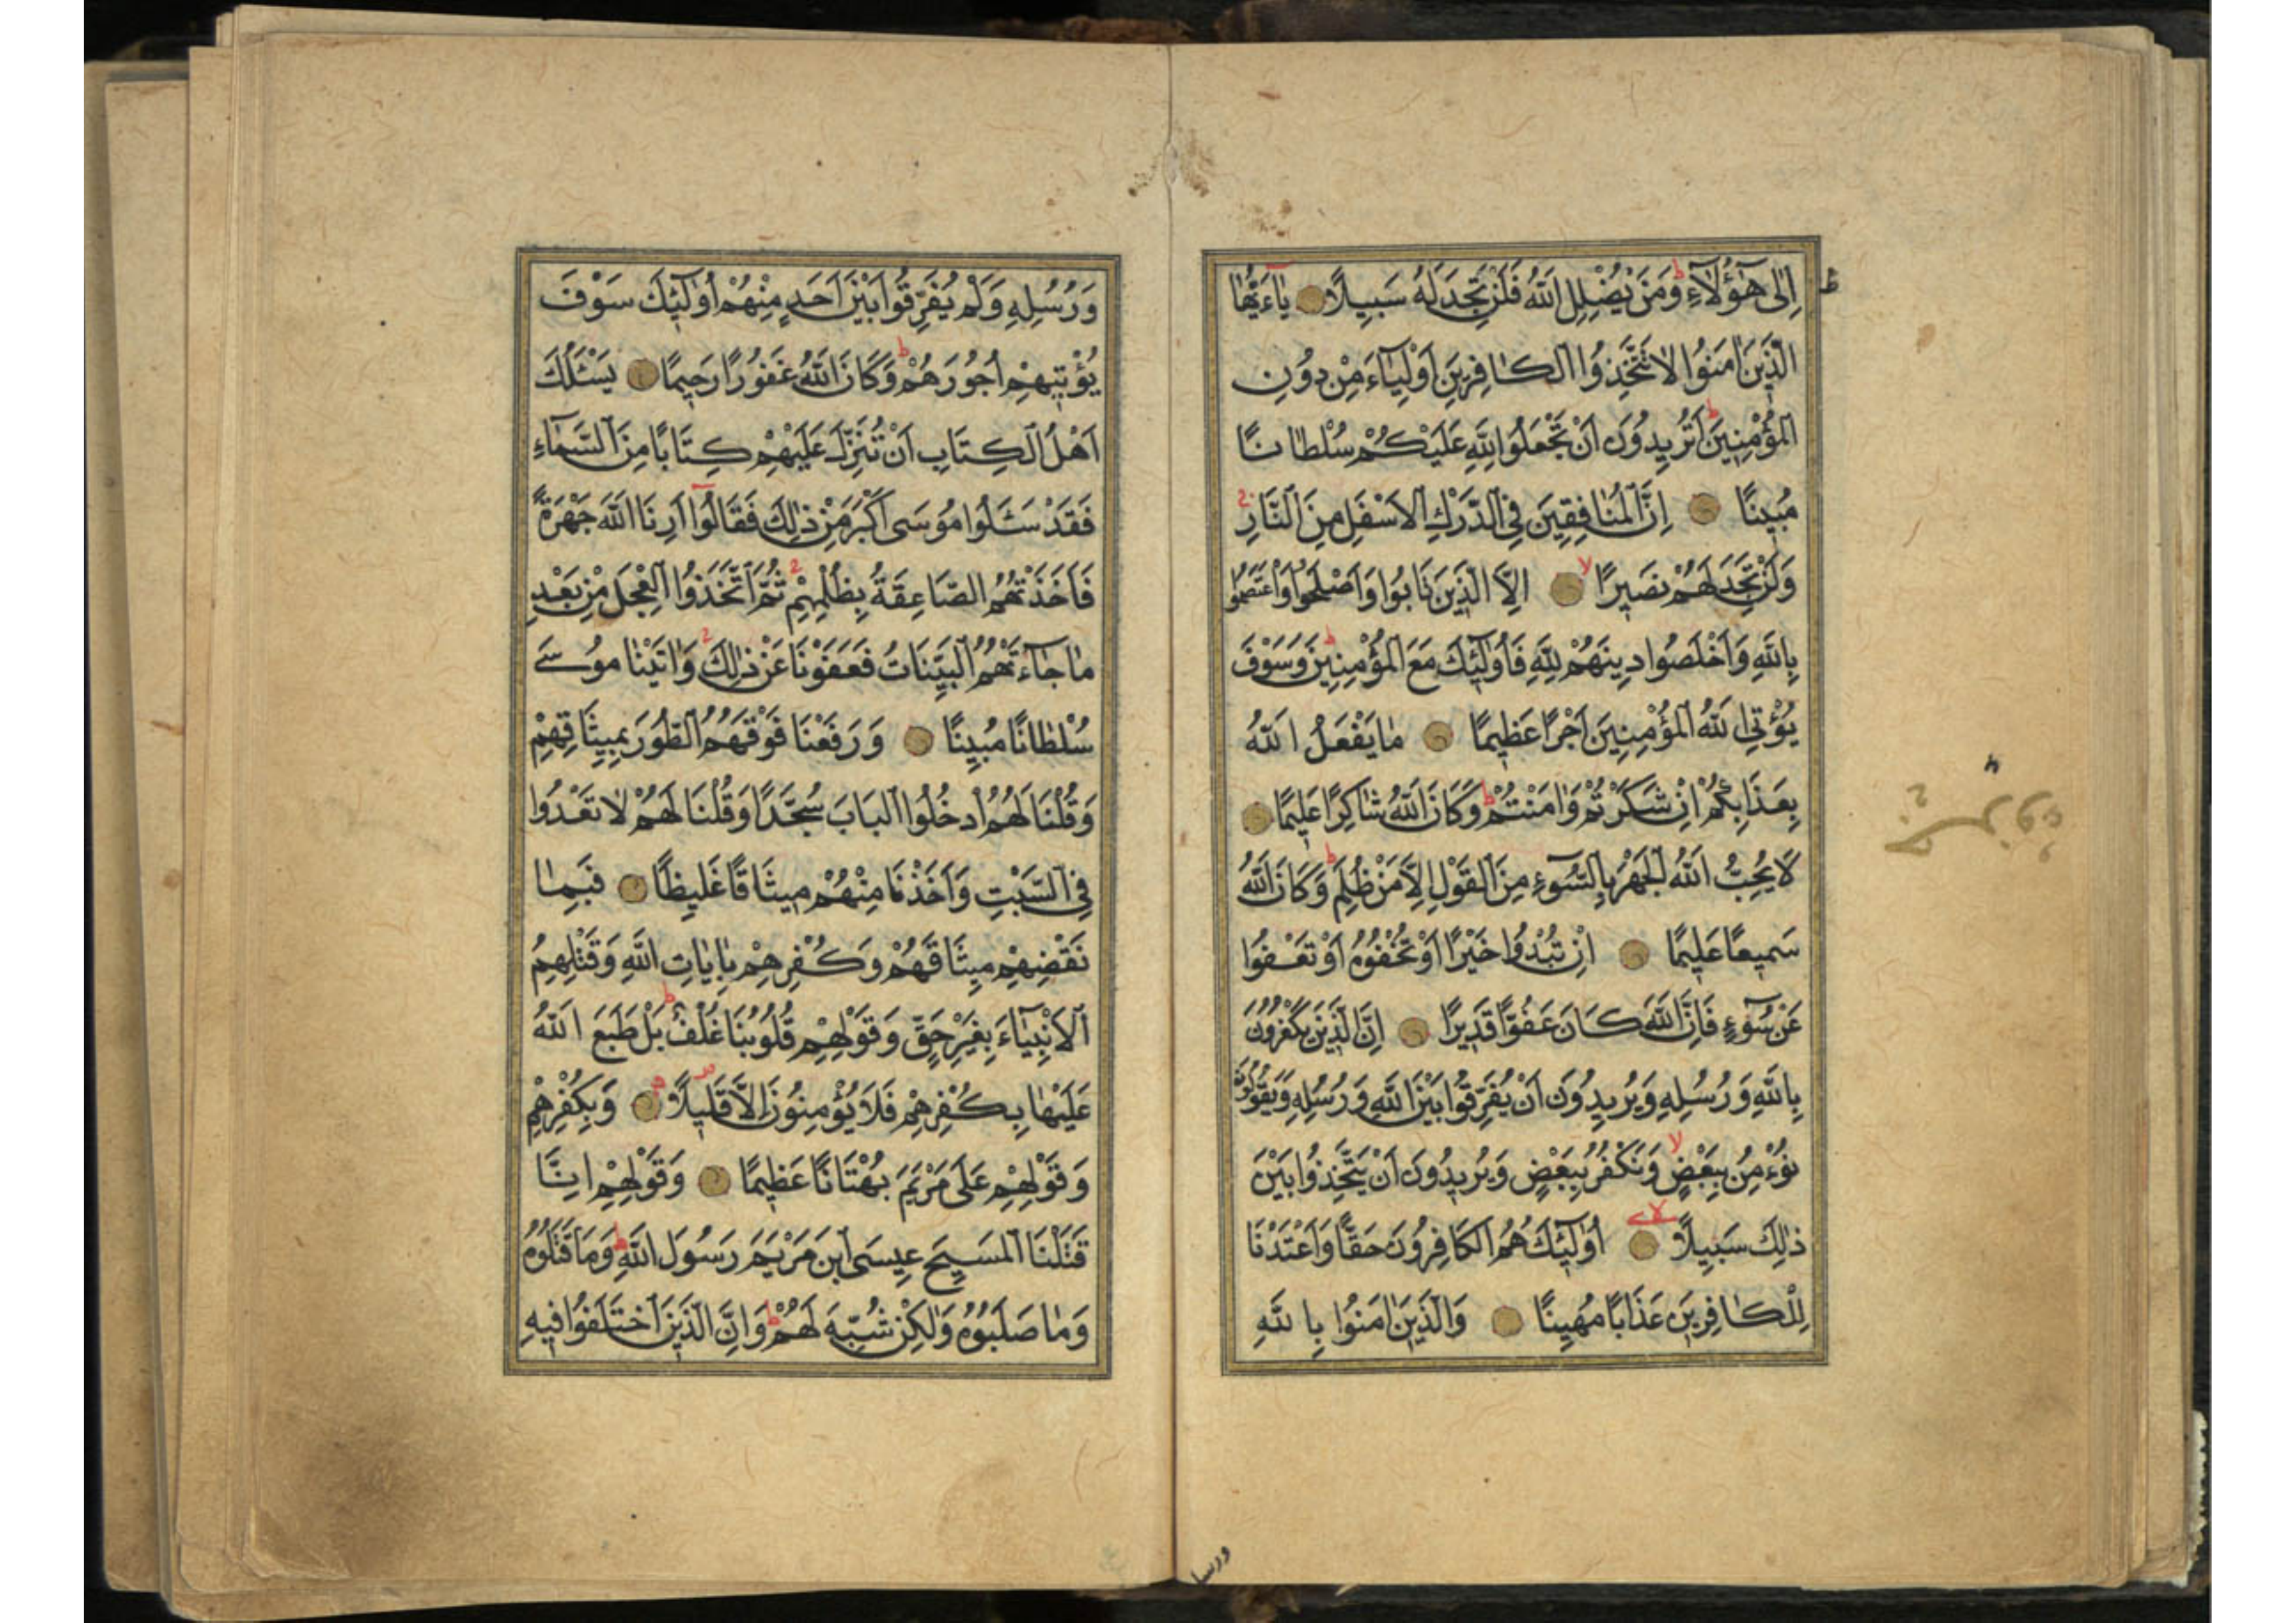 اِلٰى هٰٓؤُلَآءِ ط وَمَنْ يُضْلِلِ اللّٰهُ فَلَنْ تَجِدَ لَهُ سَبِيلًا يٰاءَيُّهَا
الَّذِينَ اٰمَنُوا لَا تَتَّخِذُوا الْكَافِرِينَ اَوْلِيَآءَ مِنْ دُونِ
الْمُؤْمِنِينَ ط اَتُرِيدُونَ اَنْ تَجْعَلُوا لِلّٰهِ عَلَيْكُمْ سُلْطَانًا
مُبِينًا اِنَّ الْمُنَافِقِينَ فِي الدَّرْكِ الْاَسْفَلِ مِنَ النَّارِ
وَلَنْ تَجِدَ لَهُمْ نَصِيرًا لا اِلَّا الَّذِينَ تَابُوا وَاَصْلَحُوا وَاعْتَصَمُوا
بِاللّٰهِ وَاَخْلَصُوا دِينَهُمْ لِلّٰهِ فَاُولٰٓئِكَ مَعَ الْمُؤْمِنِينَ ط وَسَوْفَ
يُؤْتِي اللّٰهُ الْمُؤْمِنِينَ اَجْرًا عَظِيمًا مَا يَفْعَلُ اللّٰهُ
بِعَذَابِكُمْ اِنْ شَكَرْتُمْ وَاٰمَنْتُمْ ط وَكَانَ اللّٰهُ شَاكِرًا عَلِيمًا
لَا يُحِبُّ اللّٰهُ الْجَهْرَ بِالسُّوٓءِ مِنَ الْقَوْلِ اِلَّا مَنْ ظُلِمَ ط وَكَانَ اللّٰهُ
سَمِيعًا عَلِيمًا اِنْ تُبْدُوا خَيْرًا اَوْ تُخْفُوهُ اَوْ تَعْفُوا
عَنْ سُوٓءٍ فَاِنَّ اللّٰهَ كَانَ عَفُوًّا قَدِيرًا اِنَّ الَّذِينَ يَكْفُرُونَ
بِاللّٰهِ وَرُسُلِهِ وَيُرِيدُونَ اَنْ يُفَرِّقُوا بَيْنَ اللّٰهِ وَرُسُلِهِ وَيَقُولُونَ
نُؤْمِنُ بِبَعْضٍ وَنَكْفُرُ بِبَعْضٍ لا وَيُرِيدُونَ اَنْ يَتَّخِذُوا بَيْنَ
ذٰلِكَ سَبِيلًا لا اُولٰٓئِكَ هُمُ الْكَافِرُونَ حَقًّا وَاَعْتَدْنَا
لِلْكَافِرِينَ عَذَابًا مُهِينًا وَالَّذِينَ اٰمَنُوا بِاللّٰهِ
ورسله
وَرُسُلِهِ وَلَمْ يُفَرِّقُوا بَيْنَ اَحَدٍ مِنْهُمْ اُولٰٓئِكَ سَوْفَ
يُؤْتِيهِمْ اُجُورَهُمْ ط وَكَانَ اللّٰهُ غَفُورًا رَحِيمًا يَسْئَلُكَ
اَهْلُ الْكِتَابِ اَنْ تُنَزِّلَ عَلَيْهِمْ كِتَابًا مِنَ السَّمَاءِ
فَقَدْ سَئَلُوا مُوسَى اَكْبَرَ مِنْ ذٰلِكَ فَقَالُوٓا اَرِنَا اللّٰهَ جَهْرَةً
فَاَخَذَتْهُمُ الصَّاعِقَةُ بِظُلْمِهِمْ ثُمَّ اتَّخَذُوا الْعِجْلَ مِنْ بَعْدِ
مَا جَآءَتْهُمُ الْبَيِّنَاتُ فَعَفَوْنَا عَنْ ذٰلِكَ وَاٰتَيْنَا مُوسٰى
سُلْطَانًا مُبِينًا وَرَفَعْنَا فَوْقَهُمُ الطُّورَ بِمِيثَاقِهِمْ
وَقُلْنَا لَهُمُ ادْخُلُوا الْبَابَ سُجَّدًا وَقُلْنَا لَهُمْ لَا تَعْدُوا
فِي السَّبْتِ وَاَخَذْنَا مِنْهُمْ مِيثَاقًا غَلِيظًا فَبِمَا
نَقْضِهِمْ مِيثَاقَهُمْ وَكُفْرِهِمْ بِاٰيَاتِ اللّٰهِ وَقَتْلِهِمُ
الْاَنْبِيَآءَ بِغَيْرِ حَقٍّ وَقَوْلِهِمْ قُلُوبُنَا غُلْفٌ ط بَلْ طَبَعَ اللّٰهُ
عَلَيْهَا بِكُفْرِهِمْ فَلَا يُؤْمِنُونَ اِلَّا قَلِيلًا وَبِكُفْرِهِمْ
وَقَوْلِهِمْ عَلَى مَرْيَمَ بُهْتَانًا عَظِيمًا وَقَوْلِهِمْ اِنَّا
قَتَلْنَا الْمَسِيحَ عِيسَى ابْنَ مَرْيَمَ رَسُولَ اللّٰهِ ط وَمَا قَتَلُوهُ
وَمَا صَلَبُوهُ وَلٰكِنْ شُبِّهَ لَهُمْ ط وَاِنَّ الَّذِينَ اخْتَلَفُوا فِيهِ